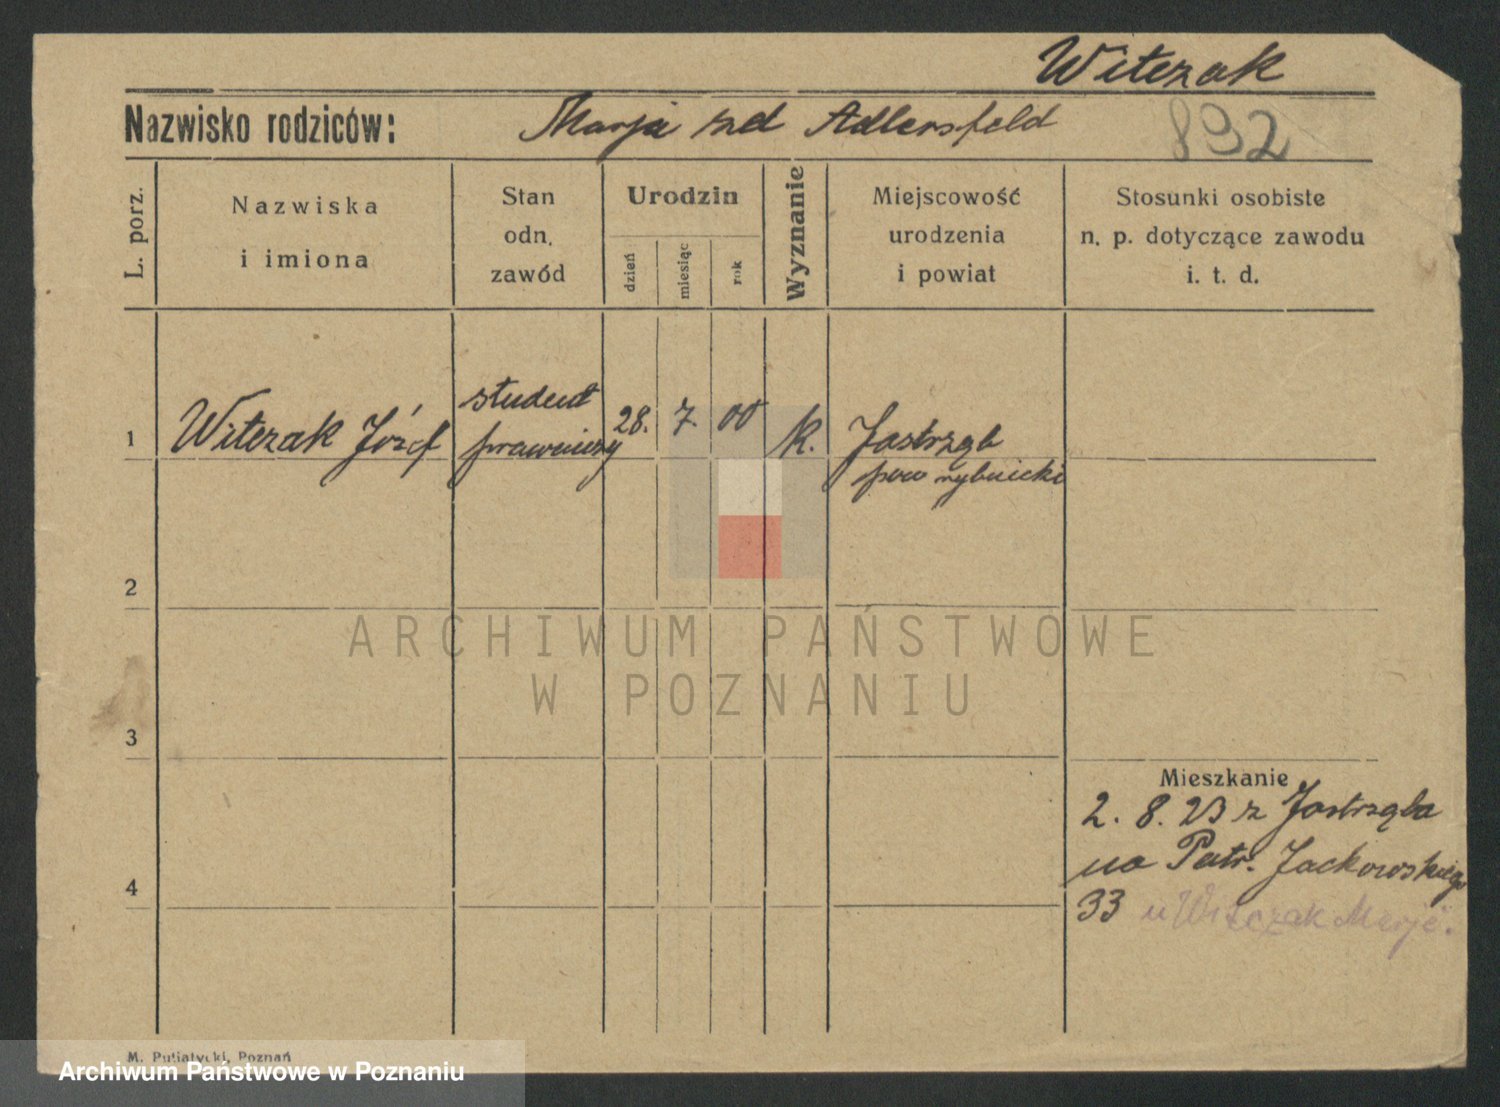 Witczak
Nazwisko rodziców: Marja zd Adlersfeld 892
L. porz.
Nazwiska
i imiona
Stan
odn.
zawód
Urodzin
dzień
miesiąc
rok
Wyznanie
Miejscowość
urodzenia
i powiat
Stosunki osobiste
n. p. dotyczące zawodu
i. t. d.
1 Witczak Józef
student
prawniczy
28. 7. 00
k.
Jastrząb
pow rybnicki
2
3
4
Mieszkanie
2. 8. 23 z Jastrzęba
na Patr. Jackowskiego
33 u Witczak Marje.
ARCHIWUM PAŃSTWOWE
W POZNANIU
M. Putiatycki, Poznań
Archiwum Państwowe w Poznaniu